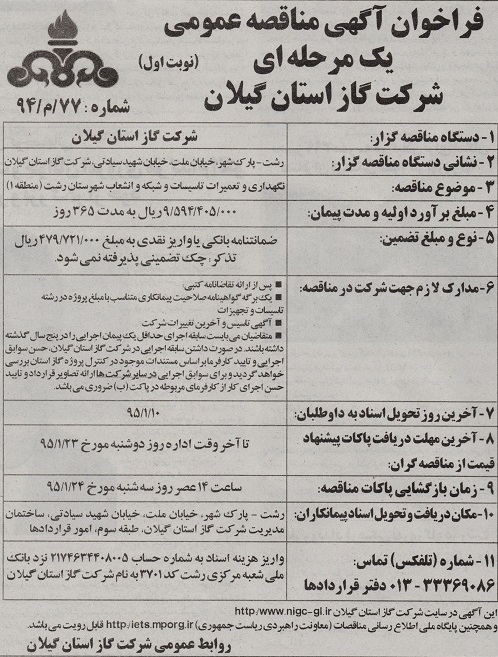 فراخوان آگهی مناقصه عمومی
یک مرحله ای
(نوبت اول)
شرکت گاز استان گیلان
شماره: ۷۷/م/۹۴
۱- دستگاه مناقصه گزار:
شرکت گاز استان گیلان
۲- نشانی دستگاه مناقصه گزار:
رشت - پارک شهر، خیابان ملت، خیابان شهید سیادتی، شرکت گاز استان گیلان
۳- موضوع مناقصه:
نگهداری و تعمیرات تاسیسات و شبکه و انشعاب شهرستان رشت (منطقه ۱)
۴- مبلغ برآورد اولیه و مدت پیمان:
۹/۵۹۴/۴۰۵/۰۰۰ ریال به مدت ۳۶۵ روز
۵- نوع و مبلغ تضمین:
ضمانتنامه بانکی یا واریز نقدی به مبلغ ۴۷۹/۷۲۱/۰۰۰ ریال
تذکر: چک تضمینی پذیرفته نمی شود.
۶- مدارک لازم جهت شرکت در مناقصه:
پس از ارائه تقاضانامه کتبی:
یک برگه گواهینامه صلاحیت پیمانکاری متناسب با مبلغ پروژه در رشته
تاسیسات و تجهیزات
آگهی تاسیس و آخرین تغییرات شرکت
متقاضیان می بایست سابقه اجرای حداقل یک پیمان اجرایی را در پنج سال گذشته
داشته باشند. در صورت داشتن سابقه اجرایی در شرکت گاز استان گیلان، حسن سوابق
اجرایی و تایید کارفرما بر اساس مستندات موجود در کنترل پروژه گاز استان بررسی
خواهد گردید و برای سوابق اجرایی در سایر شرکت ها ارائه تصاویر قرارداد و تایید
حسن اجرای کار از کارفرمای مربوطه در پاکت (ب) ضروری می باشد.
۷- آخرین روز تحویل اسناد به داوطلبان:
۹۵/۱/۱۰
۸- آخرین مهلت دریافت پاکات پیشنهاد
قیمت از مناقصه گران:
تا آخر وقت اداره روز دوشنبه مورخ ۹۵/۱/۲۳
۹- زمان بازگشایی پاکات مناقصه:
ساعت ۱۴ عصر روز سه شنبه مورخ ۹۵/۱/۲۴
۱۰- مکان دریافت و تحویل اسناد پیمانکاران:
رشت - پارک شهر، خیابان ملت، خیابان شهید سیادتی، ساختمان
مدیریت شرکت گاز استان گیلان، طبقه سوم، امور قراردادها
۱۱- شماره (تلفکس) تماس:
۳۳۳۶۹۰۸۶ - ۰۱۳ دفتر قراردادها
واریز هزینه اسناد به شماره حساب ۲۱۷۴۶۳۴۴۰۸۰۰۵ نزد بانک
ملی شعبه مرکزی رشت کد ۳۷۰۱ به نام شرکت گاز استان گیلان
این آگهی در سایت شرکت گاز استان گیلان http:/www.nigc-gl.ir
و همچنین پایگاه ملی اطلاع رسانی مناقصات (معاونت راهبردی ریاست جمهوری) http:/iets.mporg.ir قابل رویت می باشد.
روابط عمومی شرکت گاز استان گیلان